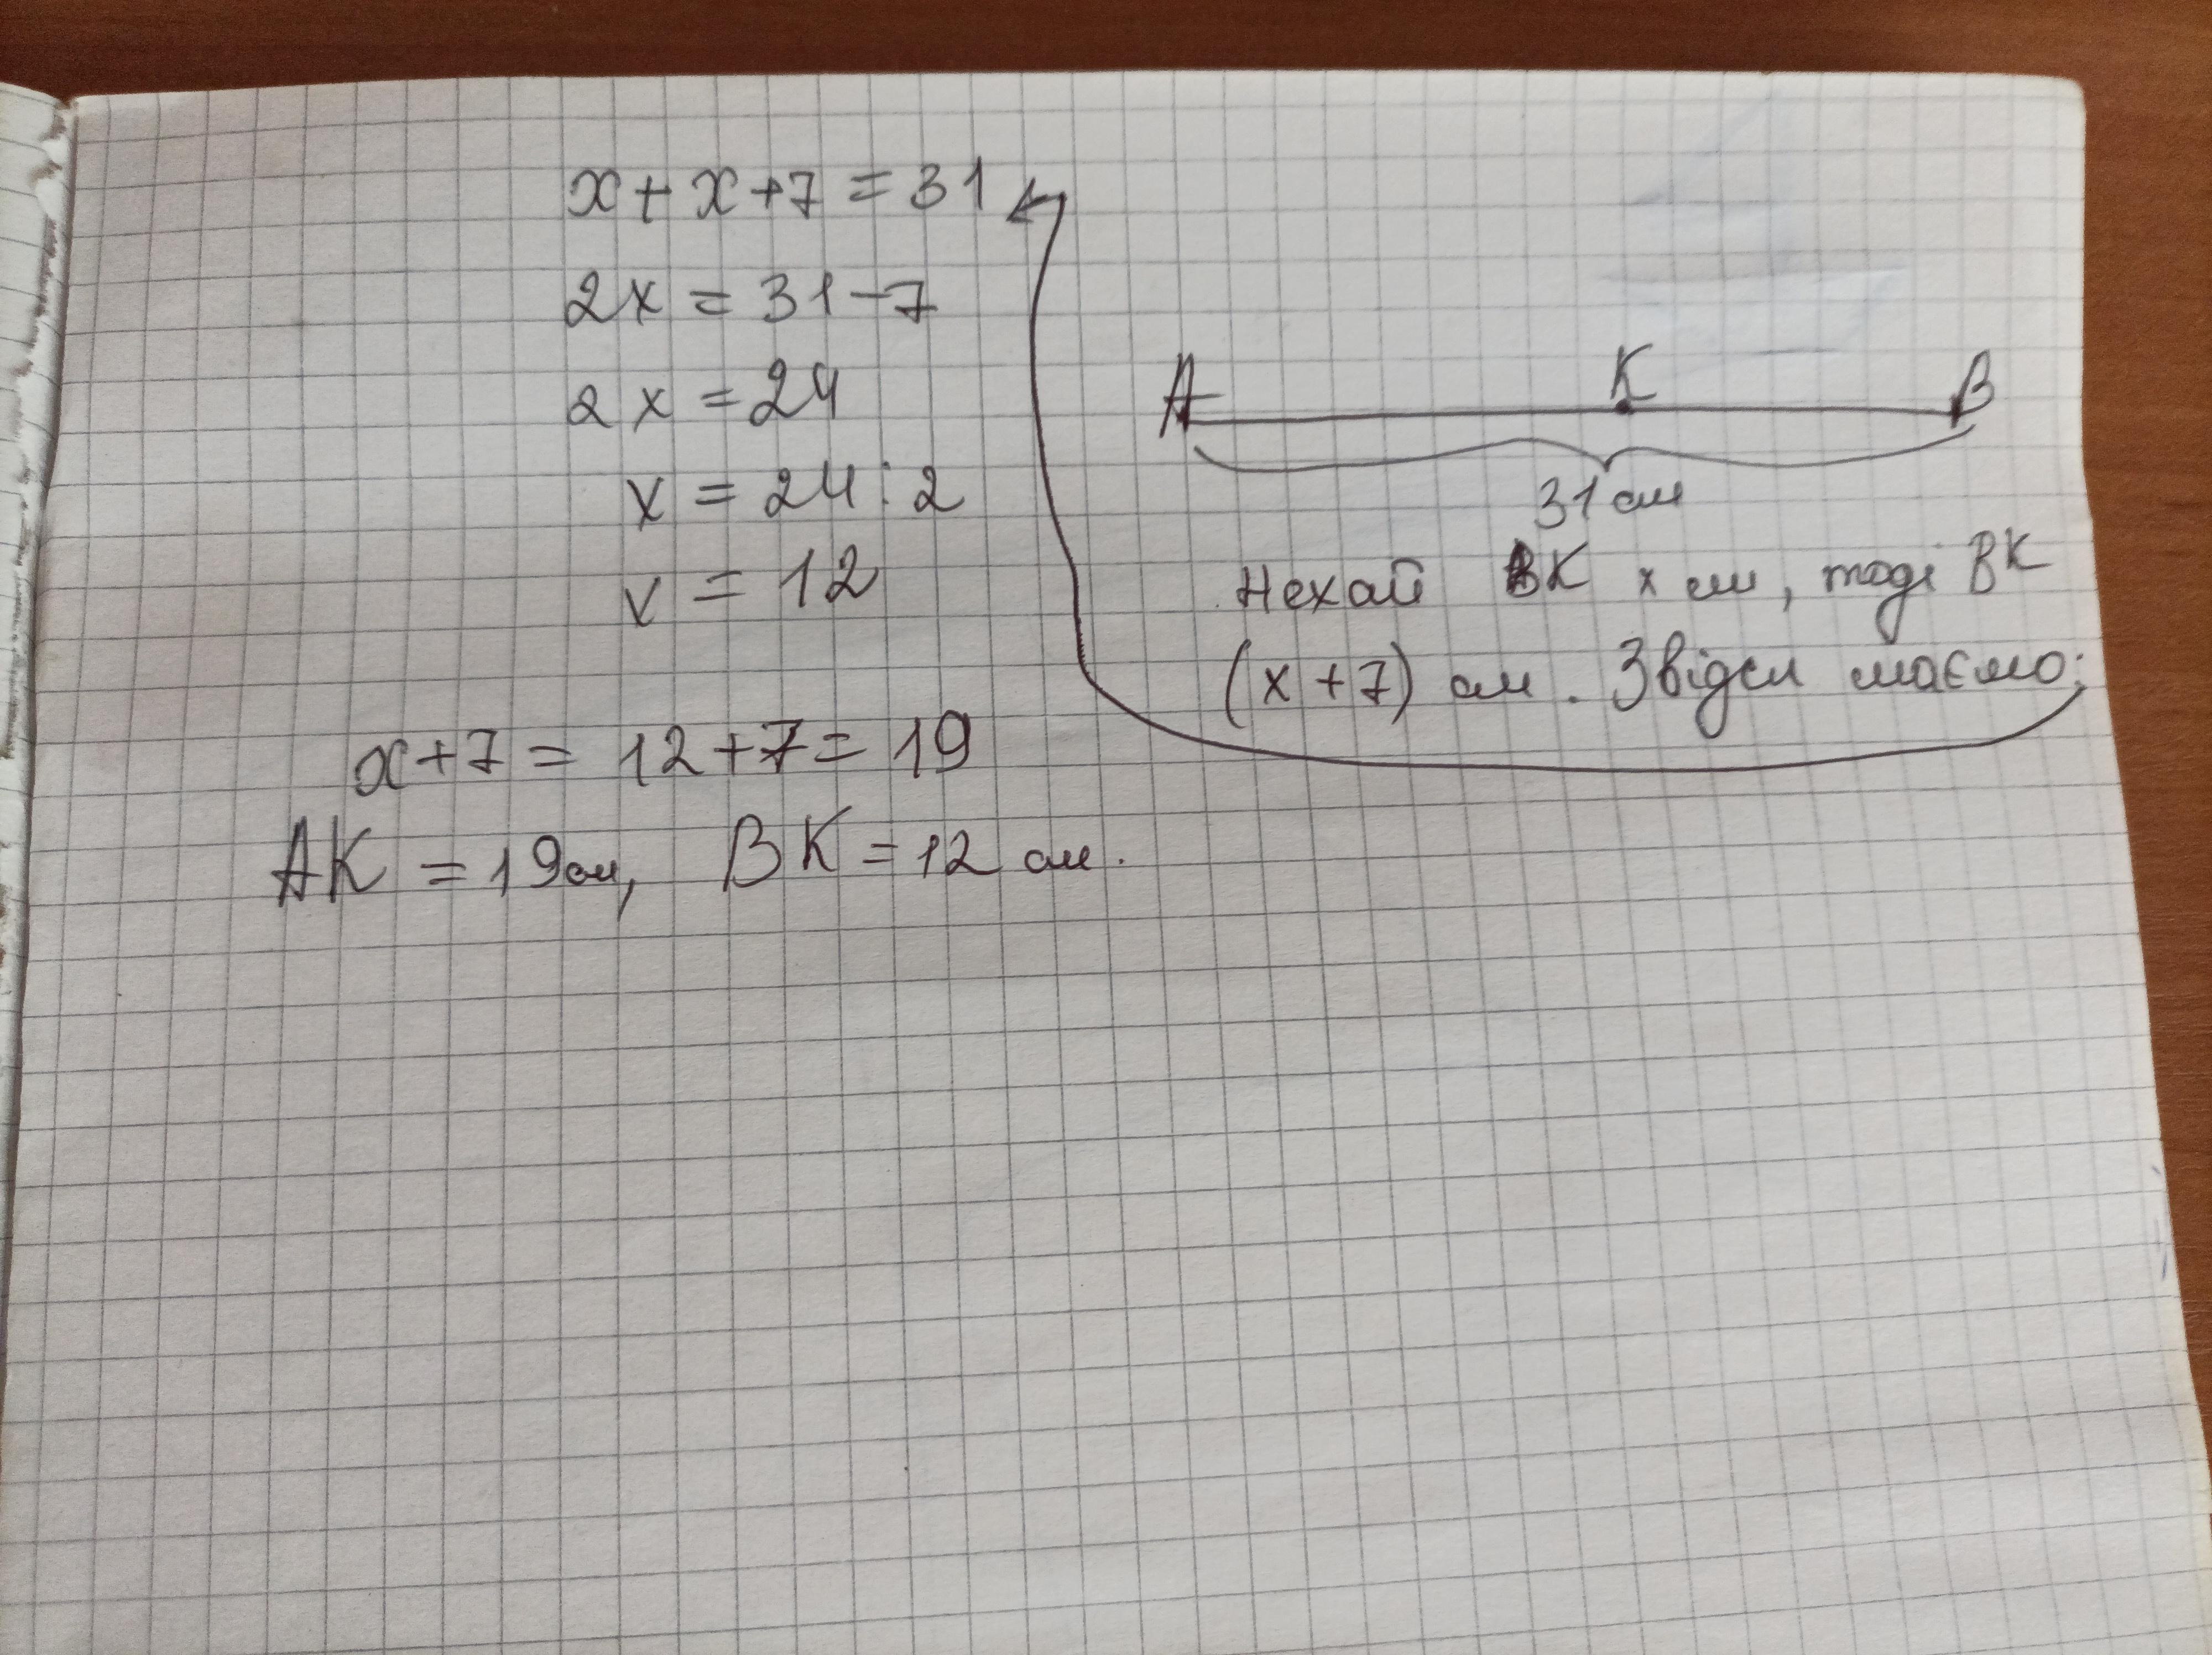 x + x + 7 = 31
2x = 31 - 7
2x = 24
x = 24 : 2
x = 12
x + 7 = 12 + 7 = 19
AK = 19 см, BK = 12 см.
A K B
31 см
Нехай BK x см, тоді BK
(x + 7) см. Звідси маємо: